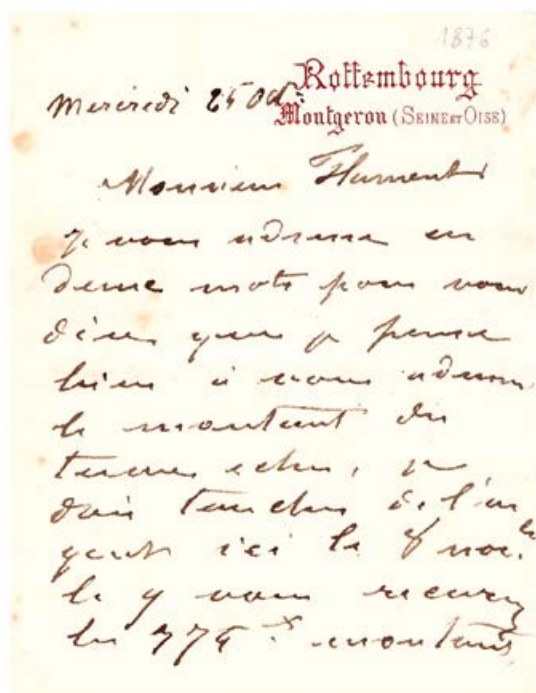 1876
Rottembourg
Montgeron (SEINE ET OISE)
Mercredi 25 Oct
Monsieur Flament
je vous adresse en
deux mots pour vous
dire que je pense
bien à vous adresser
le montant du
terme échu, je
dois toucher de l'ar
gent ici le 8 nov.bre
le 9 vous recevrez
les 775 montant